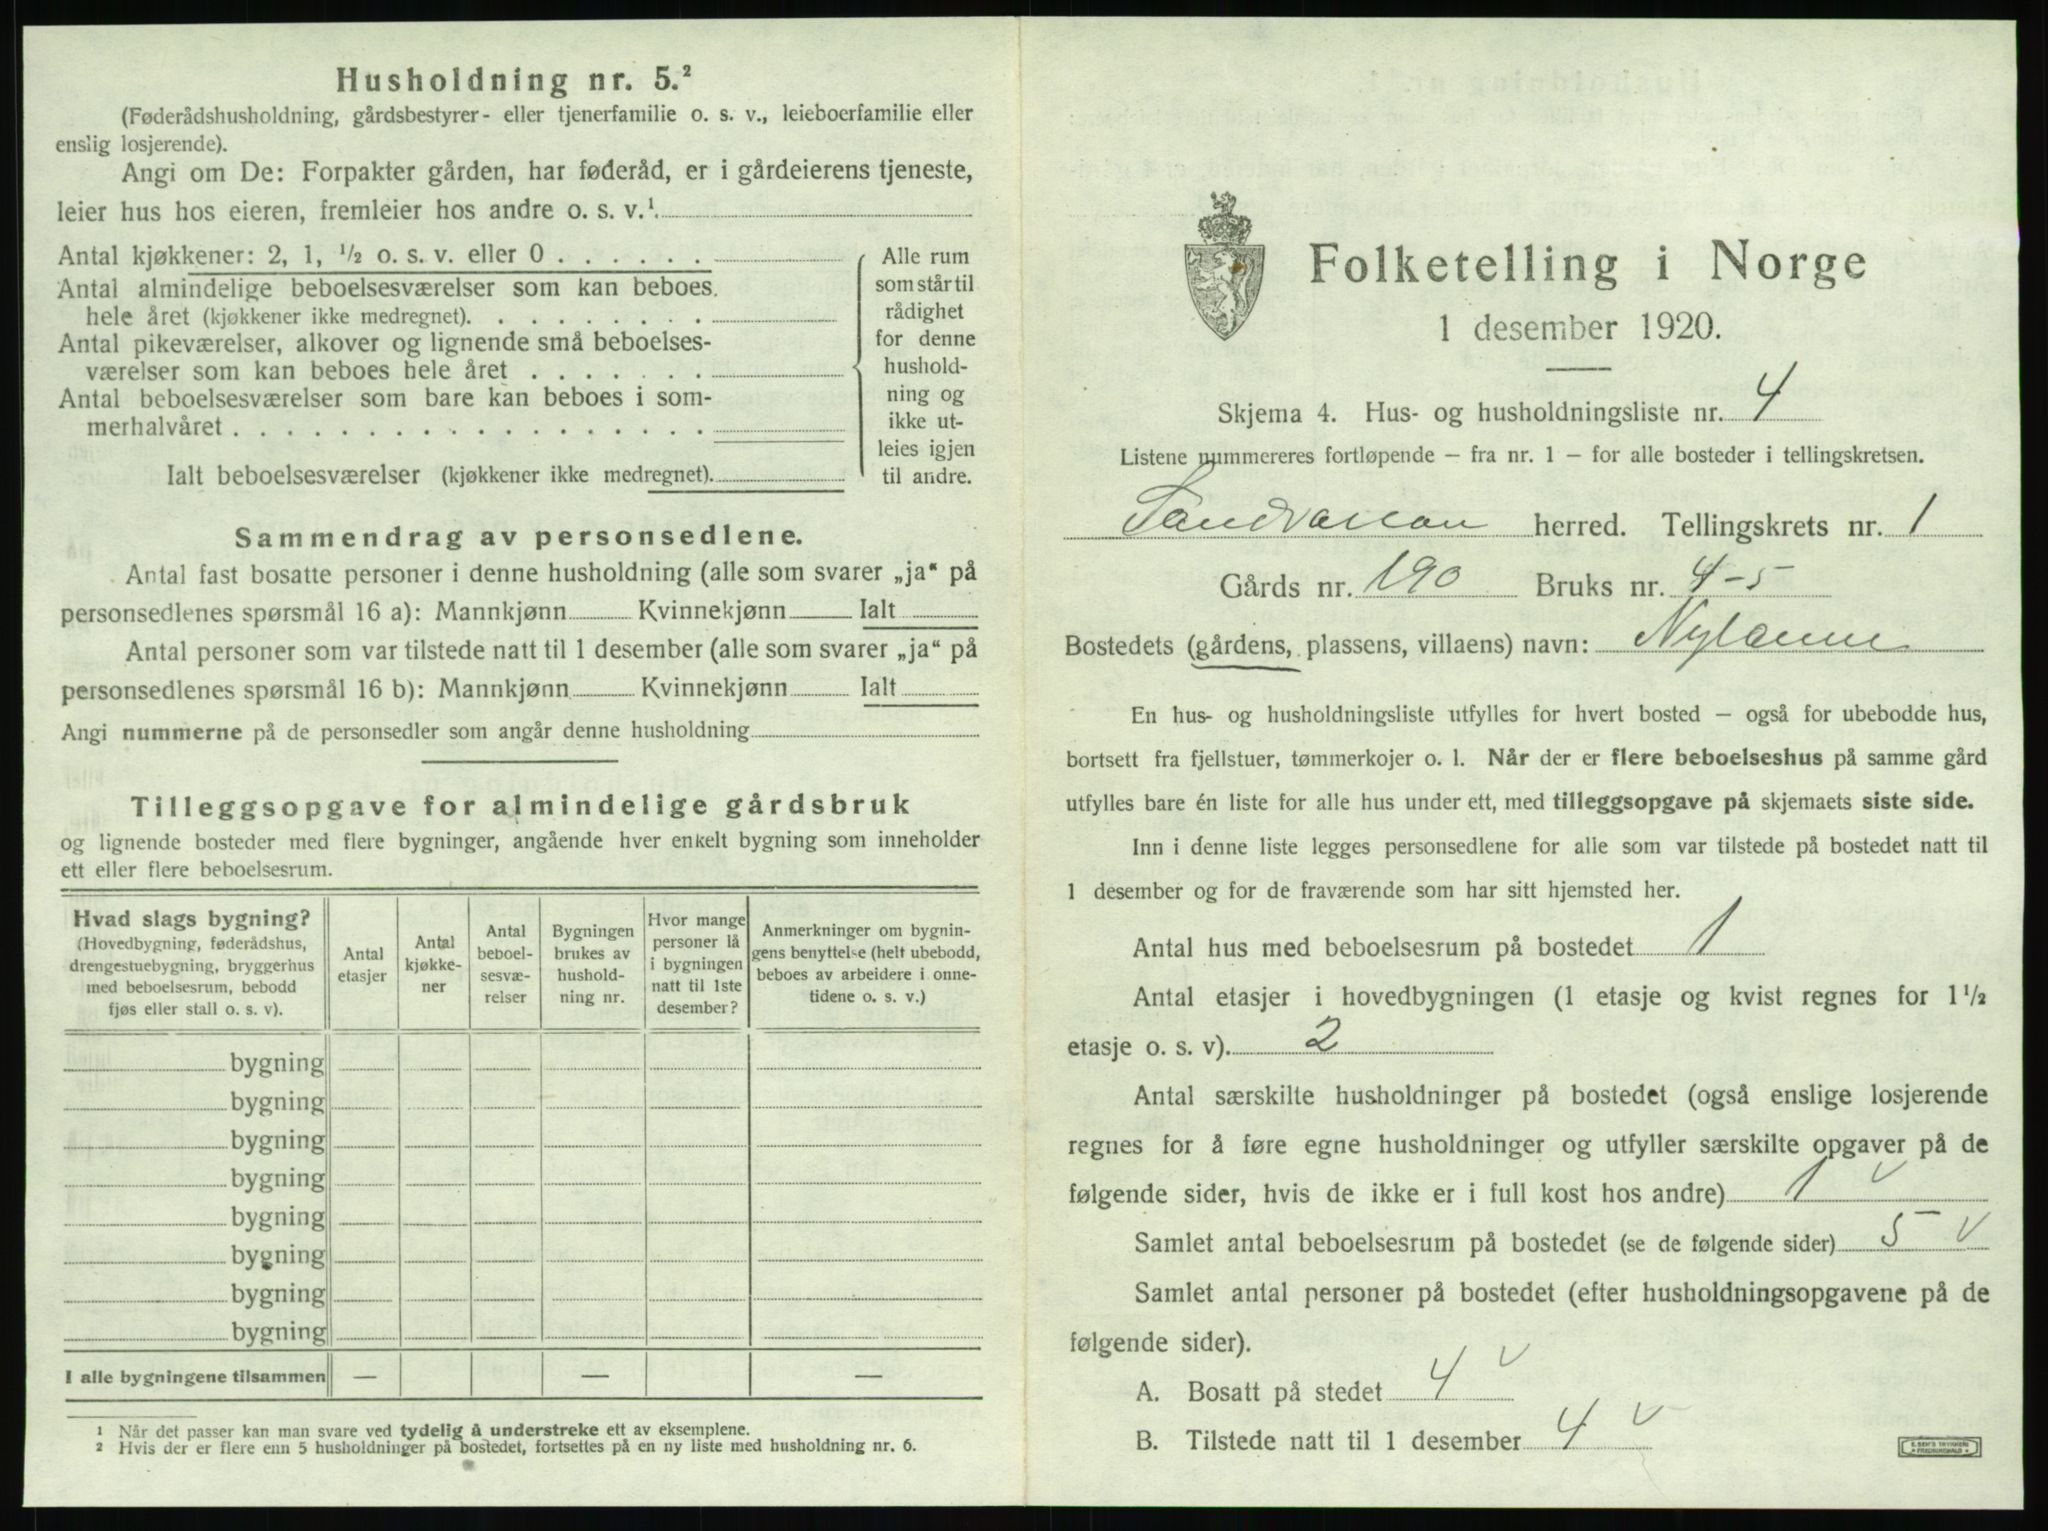 Husholdning nr. 5.²
(Føderådshusholdning, gårdsbestyrer- eller tjenerfamilie o. s. v., leieboerfamilie eller
enslig losjerende).
Angi om De: Forpakter gården, har føderåd, er i gårdeierens tjeneste,
leier hus hos eieren, fremleier hos andre o. s. v.¹
Antal kjøkkener: 2, 1, ½ o. s. v. eller 0
Antal almindelige beboelsesværelser som kan beboes
hele året (kjøkkener ikke medregnet).
Antal pikeværelser, alkover og lignende små beboelses-
værelser som kan beboes hele året
Antal beboelsesværelser som bare kan beboes i som-
merhalvåret
Ialt beboelsesværelser (kjøkkener ikke medregnet).
Alle rum
som står til
rådighet
for denne
hushold-
ning og
ikke ut-
leies igjen
til andre.
Sammendrag av personsedlene.
Antal fast bosatte personer i denne husholdning (alle som svarer „ja“ på
personsedlenes spørsmål 16 a): Mannkjønn Kvinnekjønn Ialt
Antal personer som var tilstede natt til 1 desember (alle som svarer „ja“ på
personsedlenes spørsmål 16 b): Mannkjønn Kvinnekjønn Ialt
Angi nummerne på de personsedler som angår denne husholdning
Tilleggsopgave for almindelige gårdsbruk
og lignende bosteder med flere bygninger, angående hver enkelt bygning som inneholder
ett eller flere beboelsesrum.
Hvad slags bygning?
(Hovedbygning, føderådshus,
drengestuebygning, bryggerhus
med beboelsesrum, bebodd
fjøs eller stall o. s. v).
Antal
etasjer
Antal
kjøkke-
ner
Antal
beboel-
sesvæ-
relser
Bygningen
brukes av
hushold-
ning nr.
Hvor mange
personer lå
i bygningen
natt til 1ste
desember?
Anmerkninger om bygnin-
gens benyttelse (helt ubebodd,
beboes av arbeidere i onne-
tidene o. s. v.)
bygning
bygning
bygning
bygning
bygning
bygning
bygning
bygning
I alle bygningene tilsammen — — —
¹ Når det passer kan man svare ved tydelig å understreke ett av eksemplene.
² Hvis der er flere enn 5 husholdninger på bostedet, fortsettes på en ny liste med husholdning nr. 6.
Folketelling i Norge
1 desember 1920.
Skjema 4. Hus- og husholdningsliste nr. 4
Listene nummereres fortløpende – fra nr. 1 – for alle bosteder i tellingskretsen.
herred. Tellingskrets nr. 1
Gårds nr. 190 Bruks nr. 4-5
Bostedets (gårdens, plassens, villaens) navn:
En hus- og husholdningsliste utfylles for hvert bosted – også for ubebodde hus,
bortsett fra fjellstuer, tømmerkojer o. l. Når der er flere beboelseshus på samme gård
utfylles bare én liste for alle hus under ett, med tilleggsopgave på skjemaets siste side.
Inn i denne liste legges personsedlene for alle som var tilstede på bostedet natt til
1 desember og for de fraværende som har sitt hjemsted her.
Antal hus med beboelsesrum på bostedet 1
Antal etasjer i hovedbygningen (1 etasje og kvist regnes for 1½
etasje o. s. v). 2
Antal særskilte husholdninger på bostedet (også enslige losjerende
regnes for å føre egne husholdninger og utfyller særskilte opgaver på de
følgende sider, hvis de ikke er i full kost hos andre) 1 v
Samlet antal beboelsesrum på bostedet (se de følgende sider) 5 v
Samlet antal personer på bostedet (efter husholdningsopgavene på de
følgende sider).
A. Bosatt på stedet 4 v
B. Tilstede natt til 1 desember 4 v